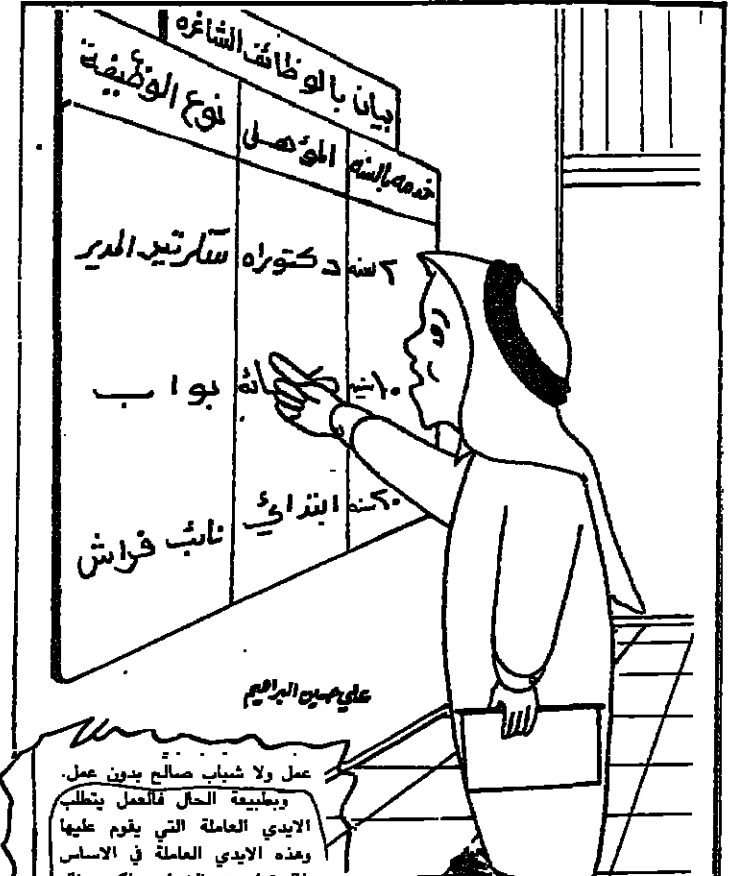 بيان بالوظائف الشاغره
نوع الوظيفة المؤهل خدمه بالسنه
سكرتير المدير دكتوراه ٢ سنه
بواب ١٠
نائب فراش ابتدائي ٢٠ سنه
علي حسين البراهيم
عمل ولا شباب صالح بدون عمل.
وبطبيعة الحال فالعمل يتطلب
الايدي العاملة التي يقوم عليها
وهذه الايدي العاملة في الاساس